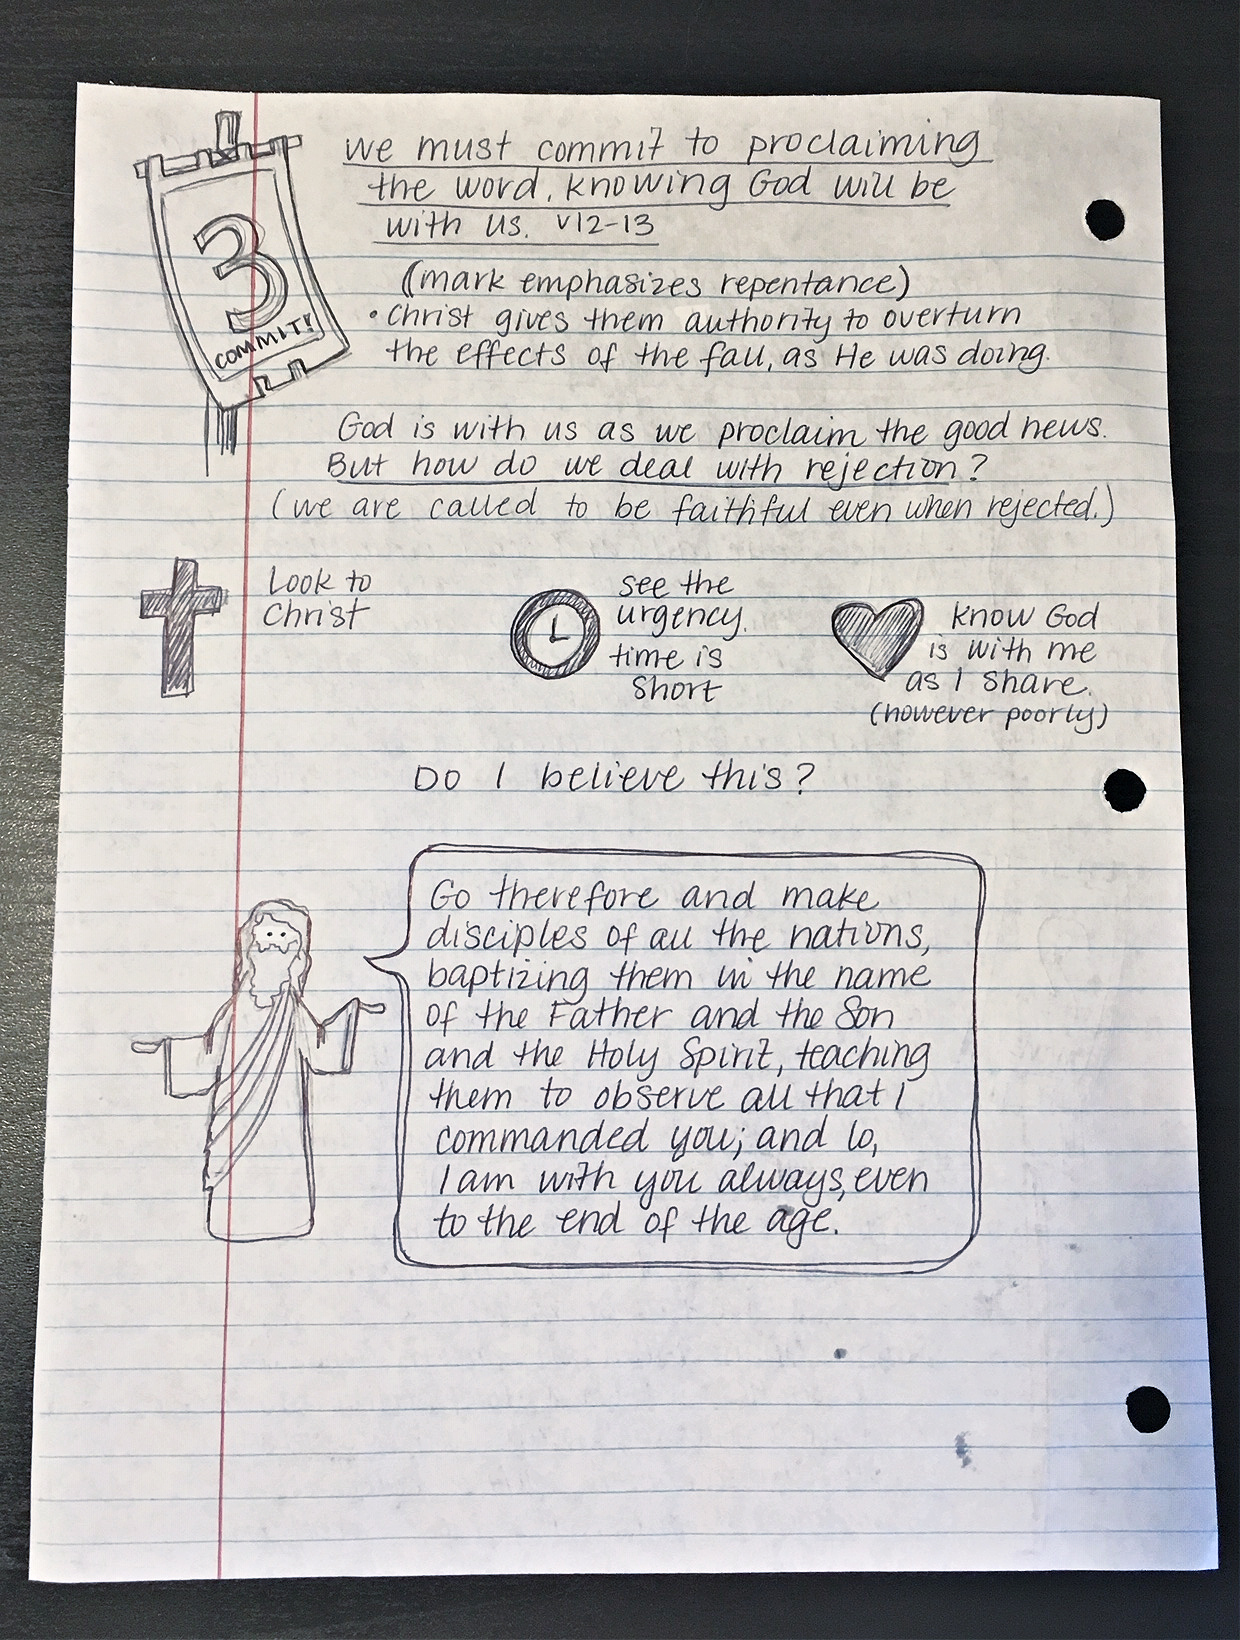 3
COMMIT!
we must commit to proclaiming
the word, knowing God will be
with us. v12-13
(mark emphasizes repentance)
• Christ gives them authority to overturn
the effects of the fall, as He was doing.
God is with us as we proclaim the good news.
But how do we deal with rejection?
(we are called to be faithful even when rejected.)
Look to
Christ
see the
urgency.
time is
short
know God
is with me
as I share.
(however poorly)
Do I believe this?
Go therefore and make
disciples of all the nations,
baptizing them in the name
of the Father and the Son
and the Holy Spirit, teaching
them to observe all that I
commanded you; and lo,
I am with you always, even
to the end of the age.